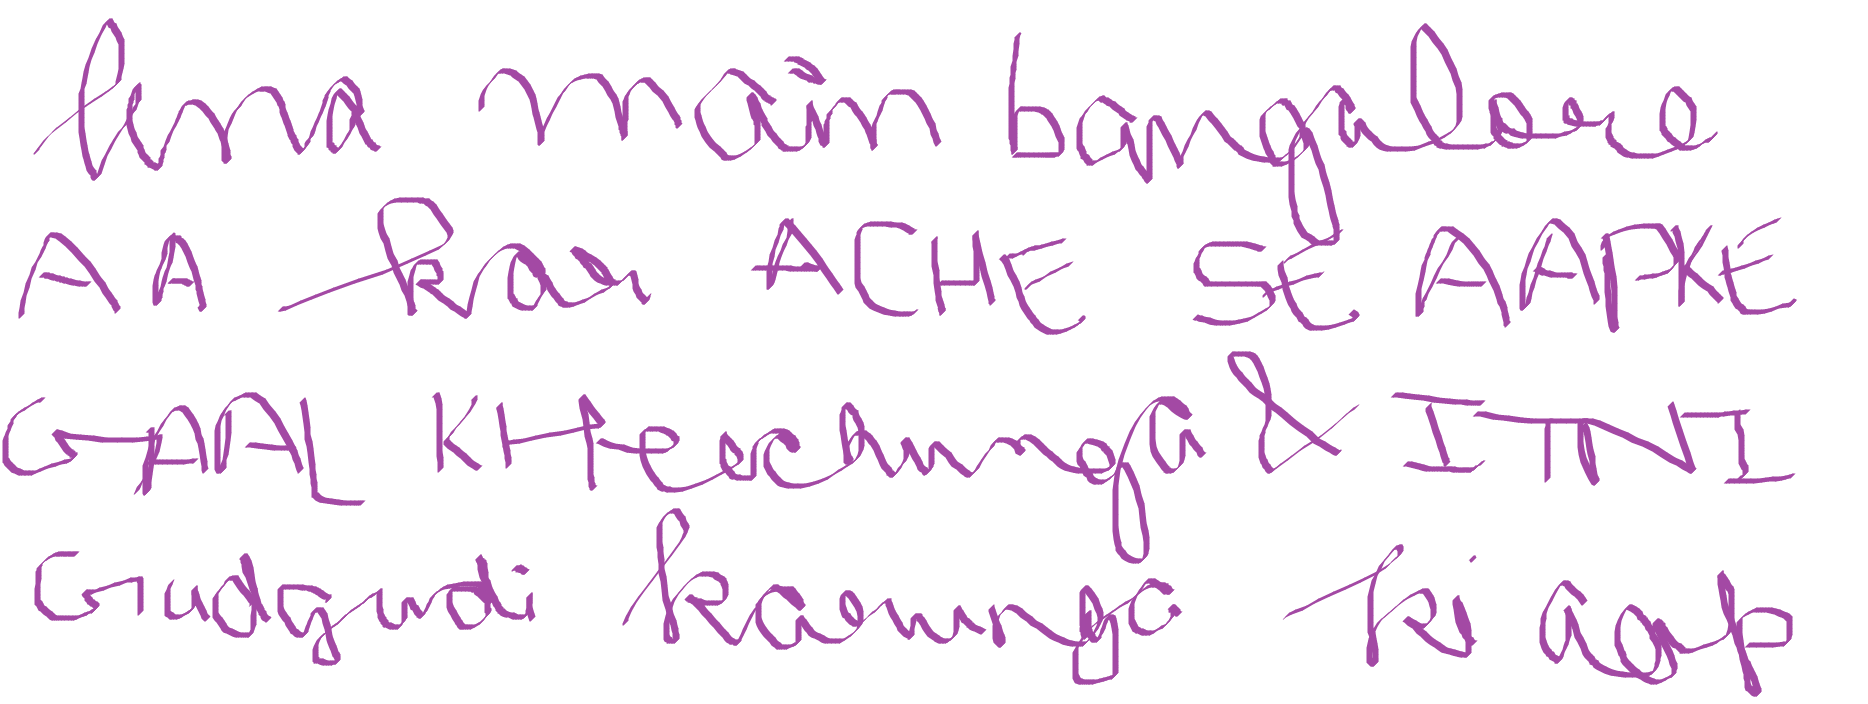 lena main bangalore
AA kar ACHE SE AAPKE
GAAL KHeechunga & ITNI
Gudgudi karunga ki aap